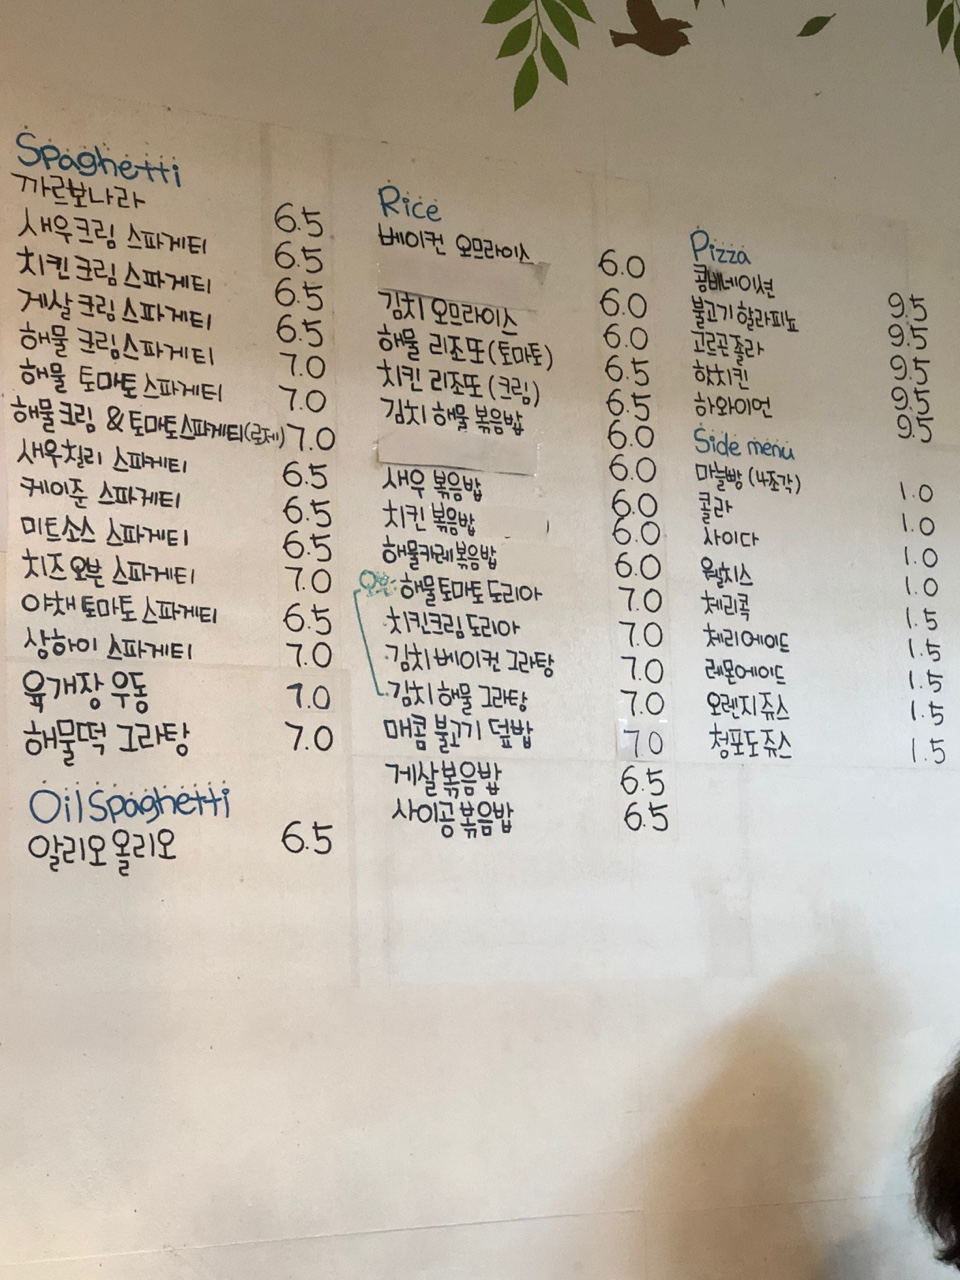 Spaghetti
까르보나라 6.5
새우크림 스파게티 6.5
치킨크림 스파게티 6.5
게살크림 스파게티 6.5
해물 크림스파게티 7.0
해물 토마토스파게티 7.0
해물크림 & 토마토스파게티(로제) 7.0
새우칠리 스파게티 6.5
케이준 스파게티 6.5
미트소스 스파게티 6.5
치즈오븐 스파게티 7.0
야채토마토 스파게티 6.5
상하이 스파게티 7.0
육개장 우동 7.0
해물떡 그라탕 7.0
Oil Spaghetti
알리오올리오 6.5
Rice
베이컨 오므라이스 6.0
6.0
김치 오므라이스 6.0
해물 리조또(토마토) 6.5
치킨 리조또(크림) 6.5
김치 해물 볶음밥 6.0
6.0
새우 볶음밥 6.0
치킨 볶음밥 6.0
해물카레볶음밥 6.0
오븐
해물토마토 도리아 7.0
치킨크림도리아 7.0
김치 베이컨 그라탕 7.0
김치 해물 그라탕 7.0
매콤 불고기 덮밥 7.0
게살볶음밥 6.5
사이공볶음밥 6.5
Pizza
콤비네이션 9.5
불고기 할라피뇨 9.5
고르곤졸라 9.5
핫치킨 9.5
하와이언 9.5
Side menu
마늘빵 (4조각) 1.0
콜라 1.0
사이다 1.0
웰치스 1.0
체리콕 1.5
체리에이드 1.5
레몬에이드 1.5
오렌지쥬스 1.5
청포도쥬스 1.5